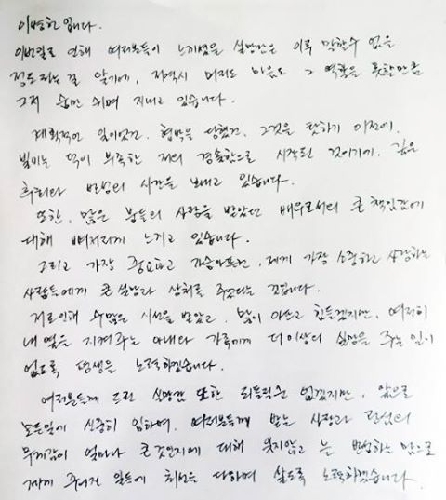 이병헌 입니다.
이번일로 인해 여러분들이 느끼셨을 실망감은 이루 말할수 없을
정도란걸 잘 알기에, 저역시 머리도 마음도 그 역할을 못한만큼
그저 숨만 쉬며 지내고 있습니다.
계획적인 일이었건, 협박을 당했건, 그것을 탓하기 이전에,
빌미는 덕이 부족한 저의 경솔함으로 시작된 것이기에, 깊은
후회와 반성의 시간을 보내고 있습니다.
또한, 많은 분들의 사랑을 받았던 배우로서의 큰 책임감에
대해 뼈저리게 느끼고 있습니다.
그리고 가장 중요하고 가슴아픈건, 제게 가장 소중하고 사랑하는
사람들에게 큰 실망과 상처를 주었다는 것입니다.
저로인해 수많은 시선을 받았고, 많이 아프고 힘들겠지만, 여전히
내 옆을 지켜주는 아내와 가족에게 더이상의 실망을 주는 일이
없도록 평생을 노력하겠습니다.
여러분들께 드린 실망감 또한 되돌릴순 없겠지만, 앞으로
모든일에 신중히 임하며, 여러분들께 받는 사랑과 관심의
무게감이 얼마나 큰 것인지에 대해 잊지않고 늘 반성하는 맘으로
제게 주어진 일들에 최선을 다하며 살도록 노력하겠습니다.